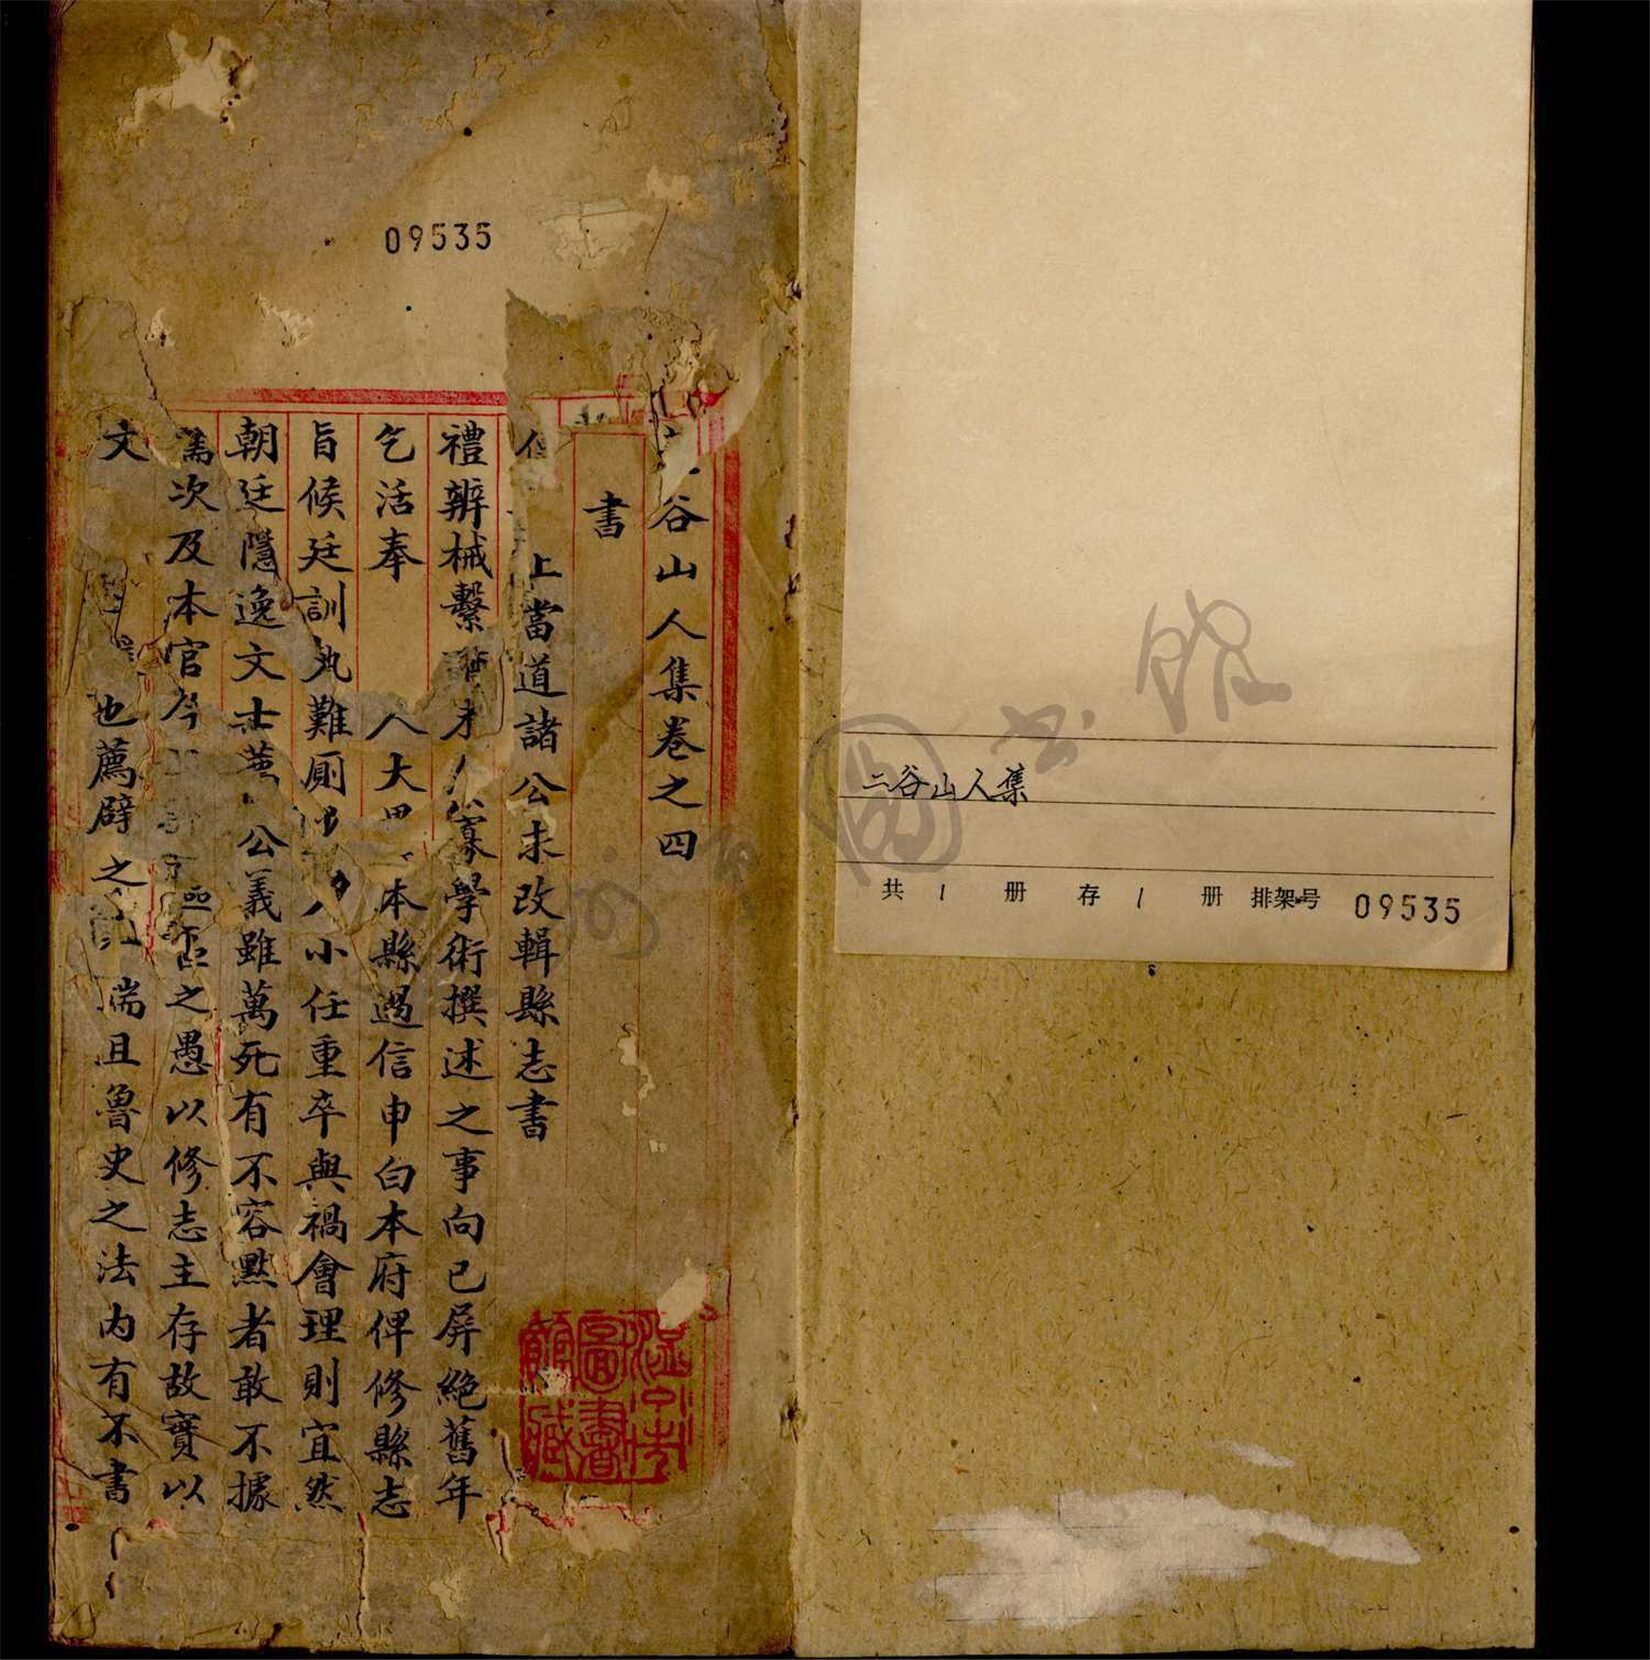 二谷山人集
共 1 册 存 1 册 排架号 09535
09535
谷山人集卷之四
書
上當道諸公未改輯縣志書
禮辨械繫 學術撰述之事向已屏絕舊年
乞活奉 大 本縣過信申白本府俾修縣志
旨候廷訓 難 小任重卒與禍會理則宜然
朝廷隱逸文士 公義雖萬死有不容默者敢不據
次及本官 之愚以修志主存故實以
文 也薦辟之 端且魯史之法內有不書
圖書館藏